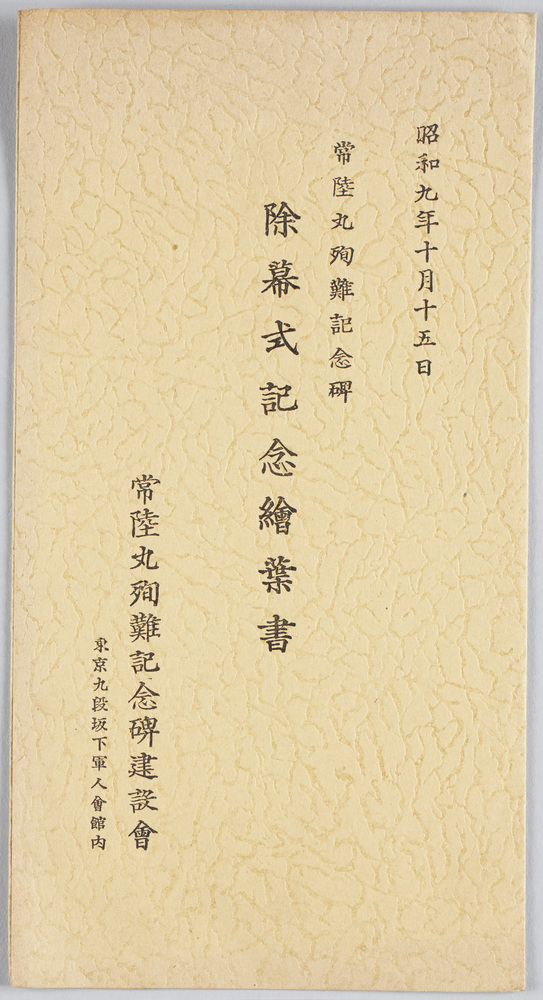 昭和九年十月十五日
常陸丸殉難記念碑
除幕式記念繪葉書
常陸丸殉難記念碑建設會
東京九段坂下軍人會館内